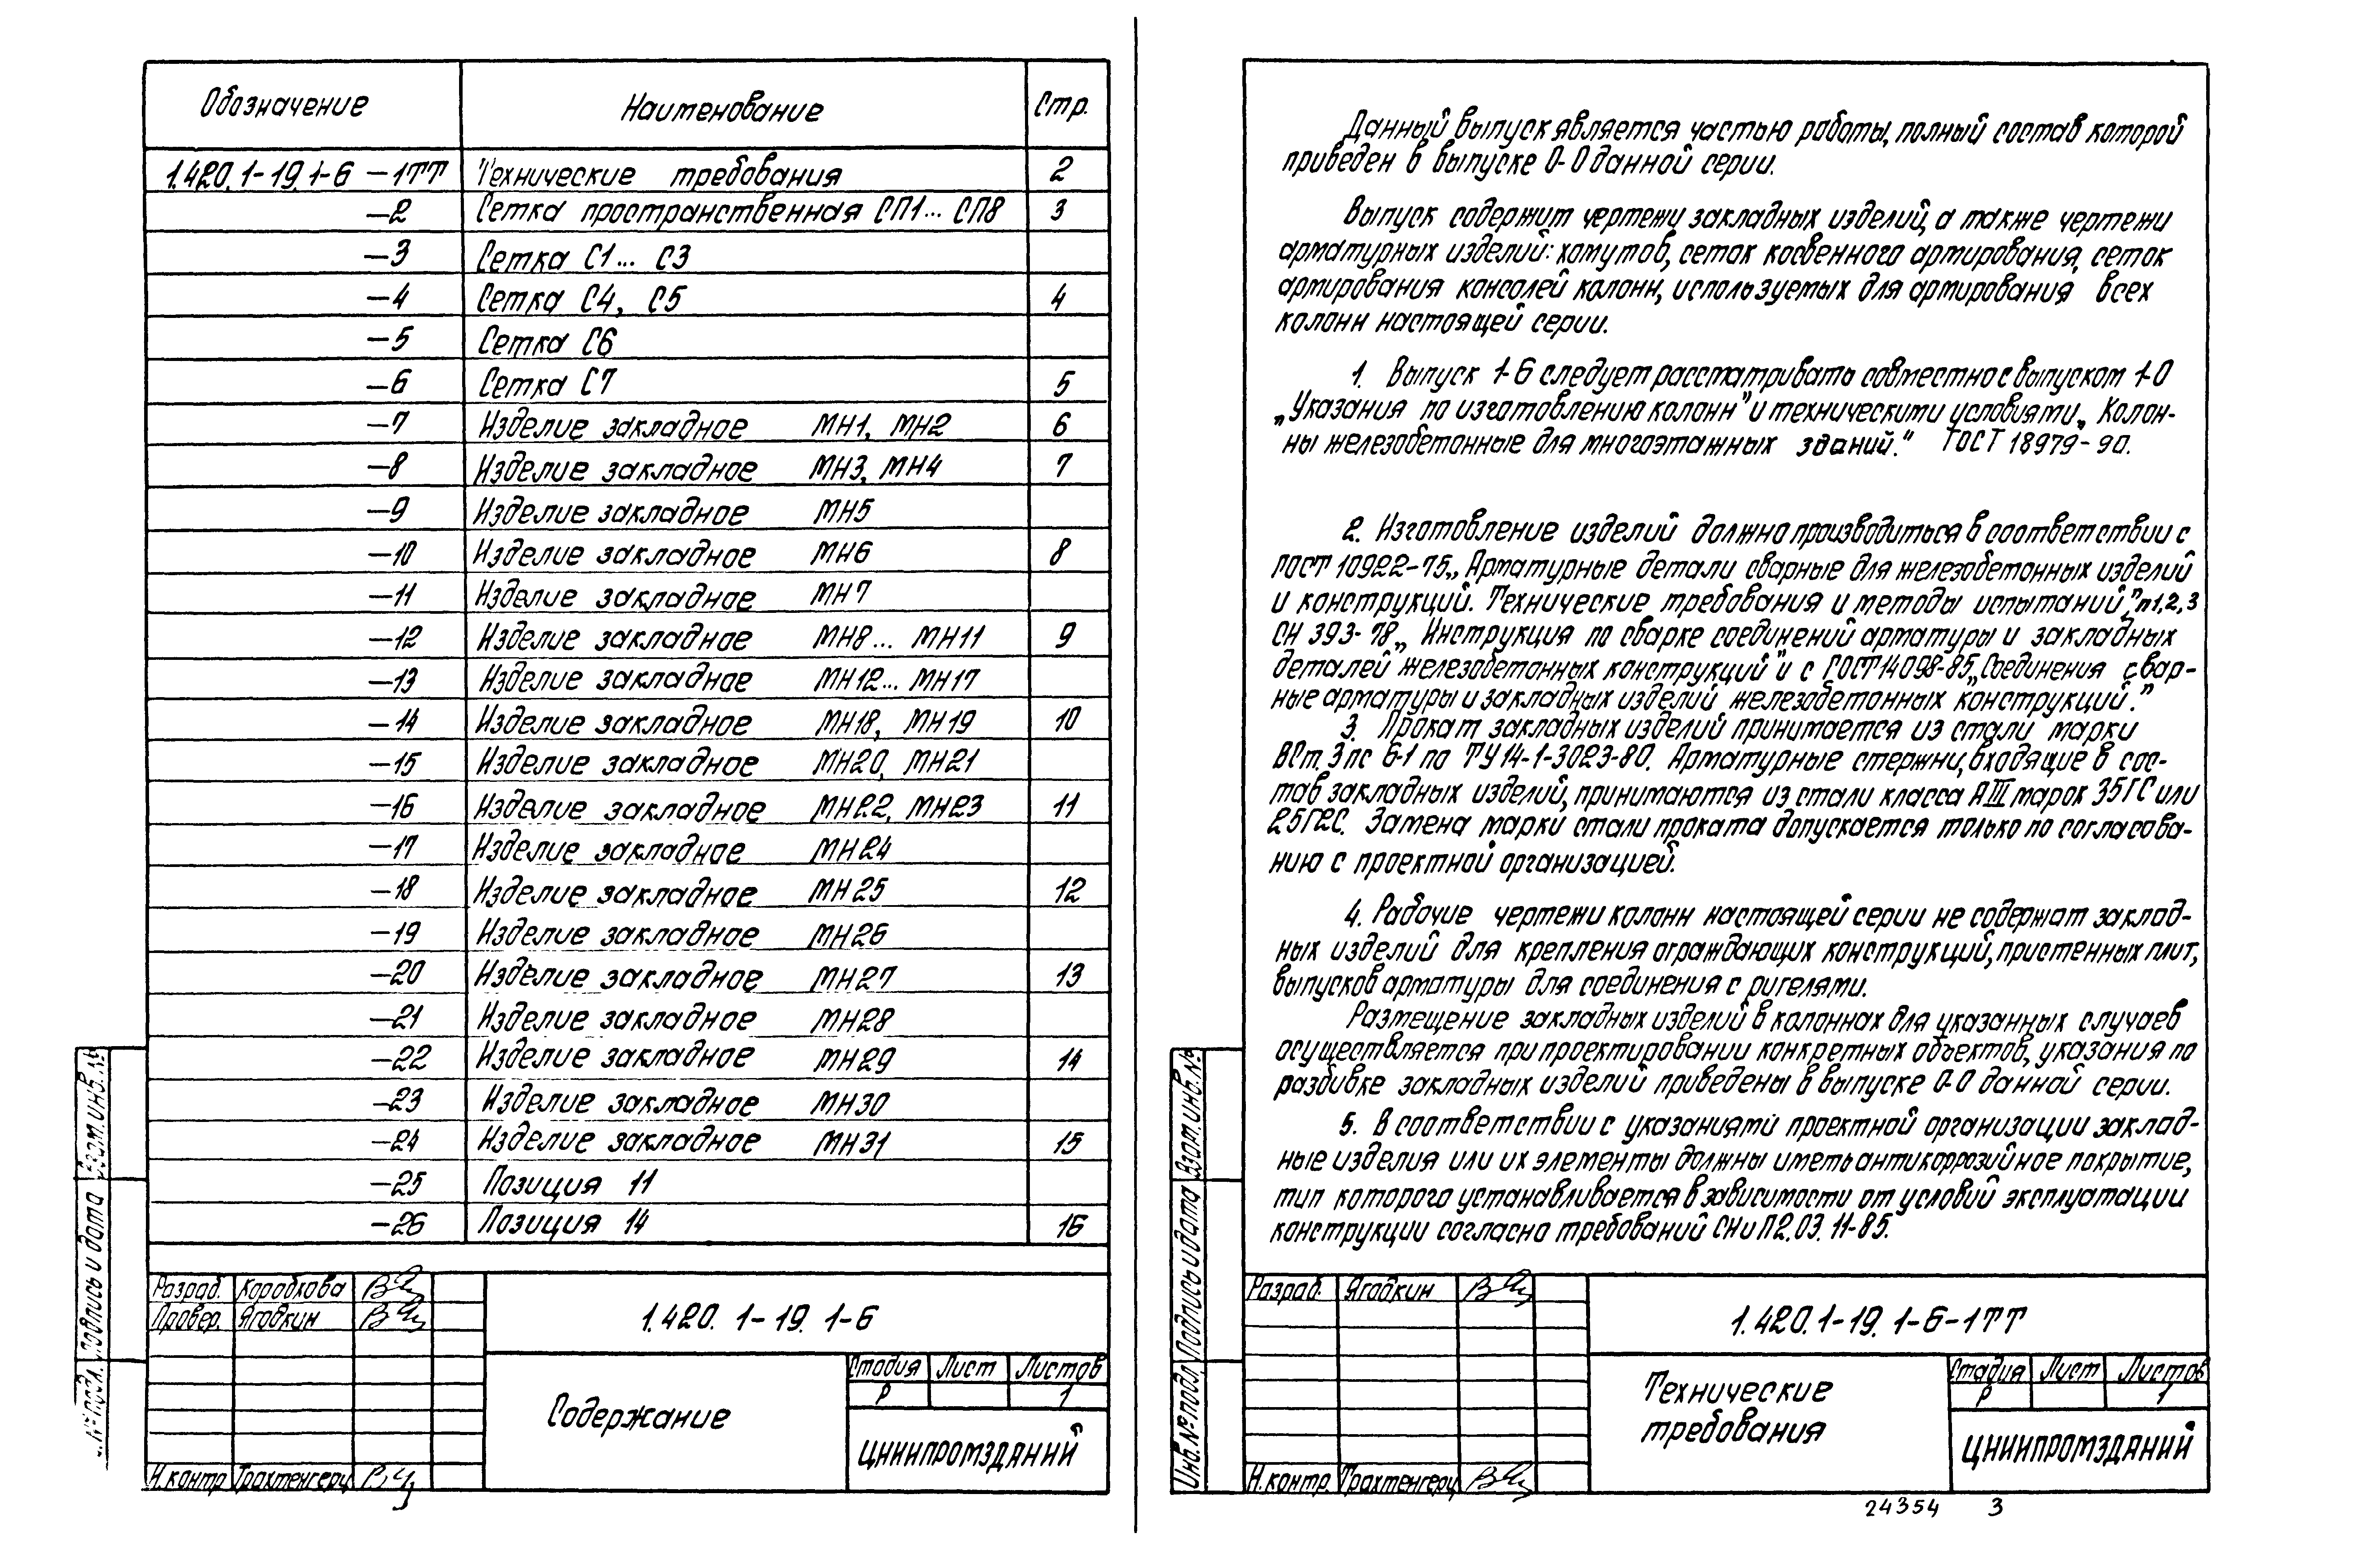 Обозначение Наименование Стр.
1.420.1-19.1-6 -1ТТ Технические требования 2
-2 Сетка пространственная СП1... СП8 3
-3 Сетка С1... С3
-4 Сетка С4, С5 4
-5 Сетка С6
-6 Сетка С7 5
-7 Изделие закладное МН1, МН2 6
-8 Изделие закладное МН3, МН4 7
-9 Изделие закладное МН5
-10 Изделие закладное МН6 8
-11 Изделие закладное МН7
-12 Изделие закладное МН8... МН11 9
-13 Изделие закладное МН12... МН17
-14 Изделие закладное МН18, МН19 10
-15 Изделие закладное МН20, МН21
-16 Изделие закладное МН22, МН23 11
-17 Изделие закладное МН24
-18 Изделие закладное МН25 12
-19 Изделие закладное МН26
-20 Изделие закладное МН27 13
-21 Изделие закладное МН28
-22 Изделие закладное МН29 14
-23 Изделие закладное МН30
-24 Изделие закладное МН31 15
-25 Позиция 11
-26 Позиция 14 16
Разраб. Коробкова
Провер. Ягодкин
Н.контр Трахтенгерц
1.420. 1-19. 1-6
Содержание
Стадия Лист Листов
Р 1
ЦНИИПРОМЗДАНИЙ
Взам.инв.№
Подпись и дата
№подл.
Данный выпуск является частью работы, полный состав которой
приведен в выпуске 0-0 данной серии.
Выпуск содержит чертежи закладных изделий, а также чертежи
арматурных изделий: хомутов, сеток косвенного армирования, сеток
армирования консолей колонн, используемых для армирования всех
колонн настоящей серии.
1. Выпуск 1-6 следует рассматривать совместно с выпуском 1-0
„Указания по изготовлению колонн" и техническими условиями „Колон-
ны железобетонные для многоэтажных зданий." ГОСТ 18979-90.
2. Изготовление изделий должно производиться в соответствии с
ГОСТ 10922-75 „Арматурные детали сварные для железобетонных изделий
и конструкций. Технические требования и методы испытаний", п1,2,3
СН 393-78 „Инструкция по сварке соединений арматуры и закладных
деталей железобетонных конструкций" и с ГОСТ 14098-85 „Соединения свар-
ные арматуры и закладных изделий железобетонных конструкций."
3. Прокат закладных изделий принимается из стали марки
ВСт.3пс 6-1 по ТУ14-1-3023-80. Арматурные стержни, входящие в сос-
тав закладных изделий, принимаются из стали класса АIII марок 35ГС или
25Г2С. Замена марки стали проката допускается только по согласова-
нию с проектной организацией.
4. Рабочие чертежи колонн настоящей серии не содержат заклад-
ных изделий для крепления ограждающих конструкций, пристенных плит,
выпусков арматуры для соединения с ригелями.
Размещение закладных изделий в колоннах для указанных случаев
осуществляется при проектировании конкретных объектов, указания по
разбивке закладных изделий приведены в выпуске 0-0 данной серии.
5. В соответствии с указаниями проектной организации заклад-
ные изделия или их элементы должны иметь антикоррозийное покрытие,
тип которого устанавливается в зависимости от условий эксплуатации
конструкции согласно требований СНиП2.03.11-85.
Разраб. Ягодкин
Н.контр. Трахтенгерц
1.420.1-19. 1-6-1ТТ
Технические
требования
Стадия Лист Листов
Р 1
ЦНИИПРОМЗДАНИЙ
Взам.инв.№
Подпись и дата
Инв.№подл
24354 3